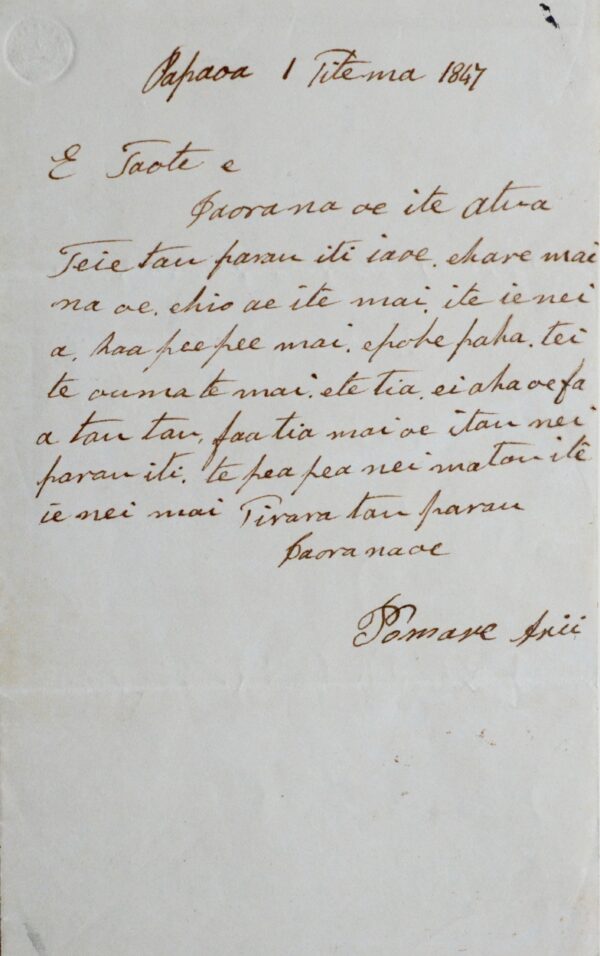 Papaoa 1 Titema 1847
E Taote e
Iaorana oe ite atua
Teie tau parau iti iaoe. ehare mai
na oe. ehio ae ite mai. ite ie nei
a. haa pee pee mai. epohe paha. tei
te ouma te mai. ete tia. ei aha oe fa
a tau tau. faa tia mai oe itau nei
parau iti. te pea pea nei matou ite
ie nei mai Tirara tau parau
Iaorana oe
Pomare Arii